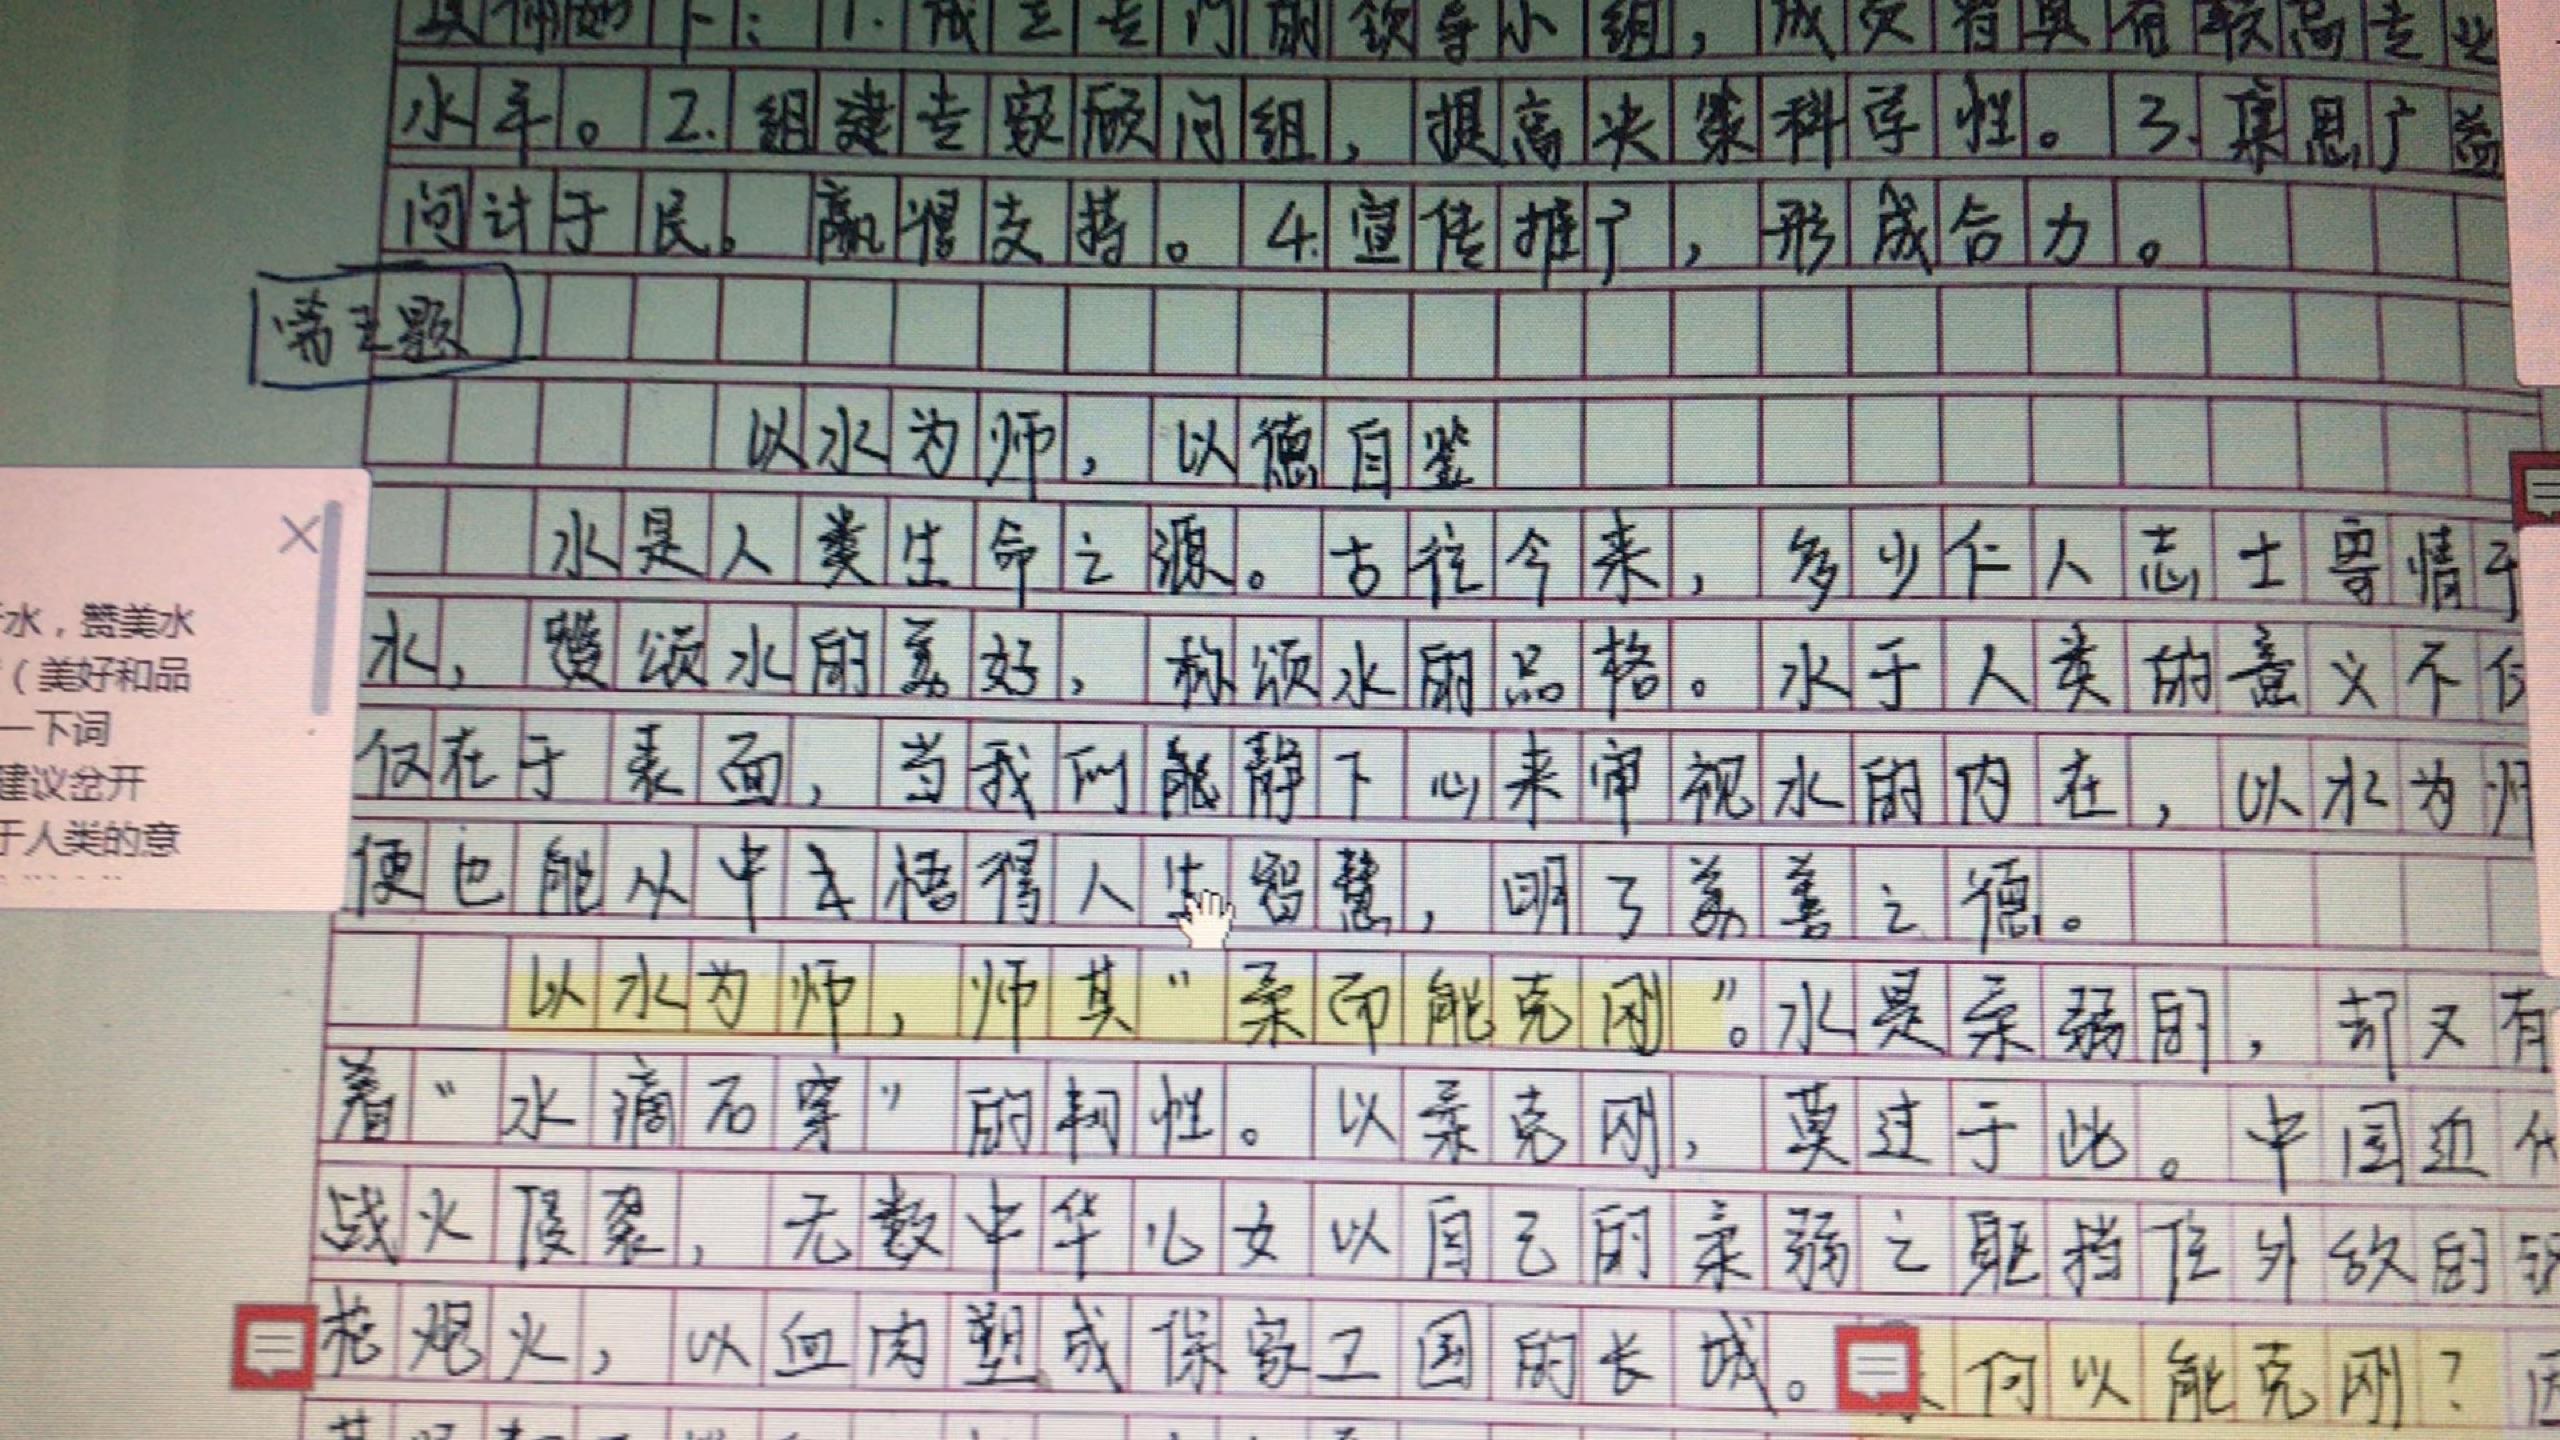 具体如下：1.成立专门的领导小组，成员有具有较高专业
水平。2.组建专家顾问组，提高决策科学性。3.集思广益
问计于民。赢得支持。4.宣传推广，形成合力。
第五题
以水为师，以德自鉴
水是人类生命之源。古往今来，多少仁人志士寄情于
水，赞颂水的美好，称颂水的品格。水于人类的意义不仅
仅在于表面，当我们能静下心来审视水的内在，以水为师
便也能从中去悟得人生智慧，明了美善之德。
以水为师，师其"柔而能克刚"。水是柔弱的，却又有
着"水滴石穿"的韧性。以柔克刚，莫过于此。中国近代
战火侵袭，无数中华儿女以自己的柔弱之躯挡住外敌的
炮火，以血肉塑成保家卫国的长城。何以能克刚？因
水，赞美水
（美好和品
一下词
建议岔开
于人类的意